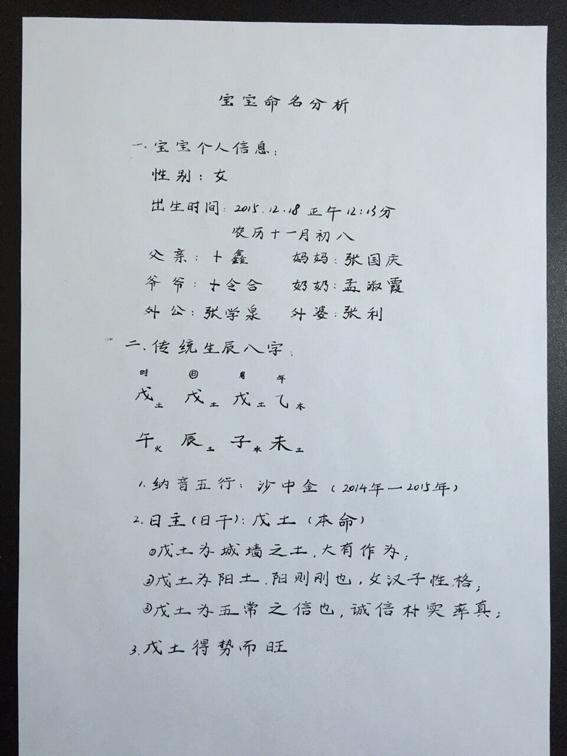 宝宝命名分析
一.宝宝个人信息:
性别:女
出生时间:2015.12.18 正午12:15分
农历十一月初八
父亲:十鑫 妈妈:张国庆
爷爷:十令合 奶奶:孟淑霞
外公:张学泉 外婆:张利
二.传统生辰八字:
时 日 月 年
戊土 戊土 戊土 乙木
午火 辰土 子水 未土
1.纳音五行:沙中金(2014年—2015年)
2.日主(日干):戊土(本命)
①戊土为城墙之土,大有作为;
②戊土为阳土,阳则刚也,女汉子性格;
③戊土为五常之信也,诚信朴实率真;
3.戊土得势而旺